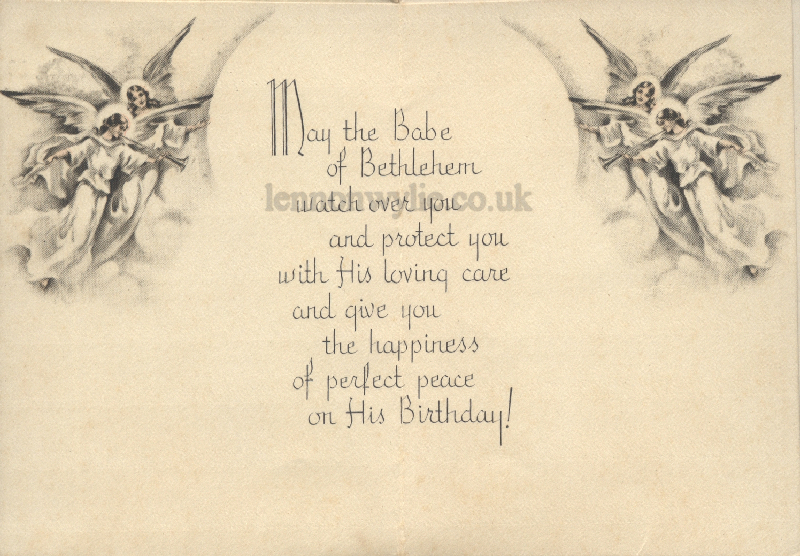 May the Babe
of Bethlehem
lennonwylie.co.uk
watch over you
and protect you
with His loving care
and give you
the happiness
of perfect peace
on His Birthday!